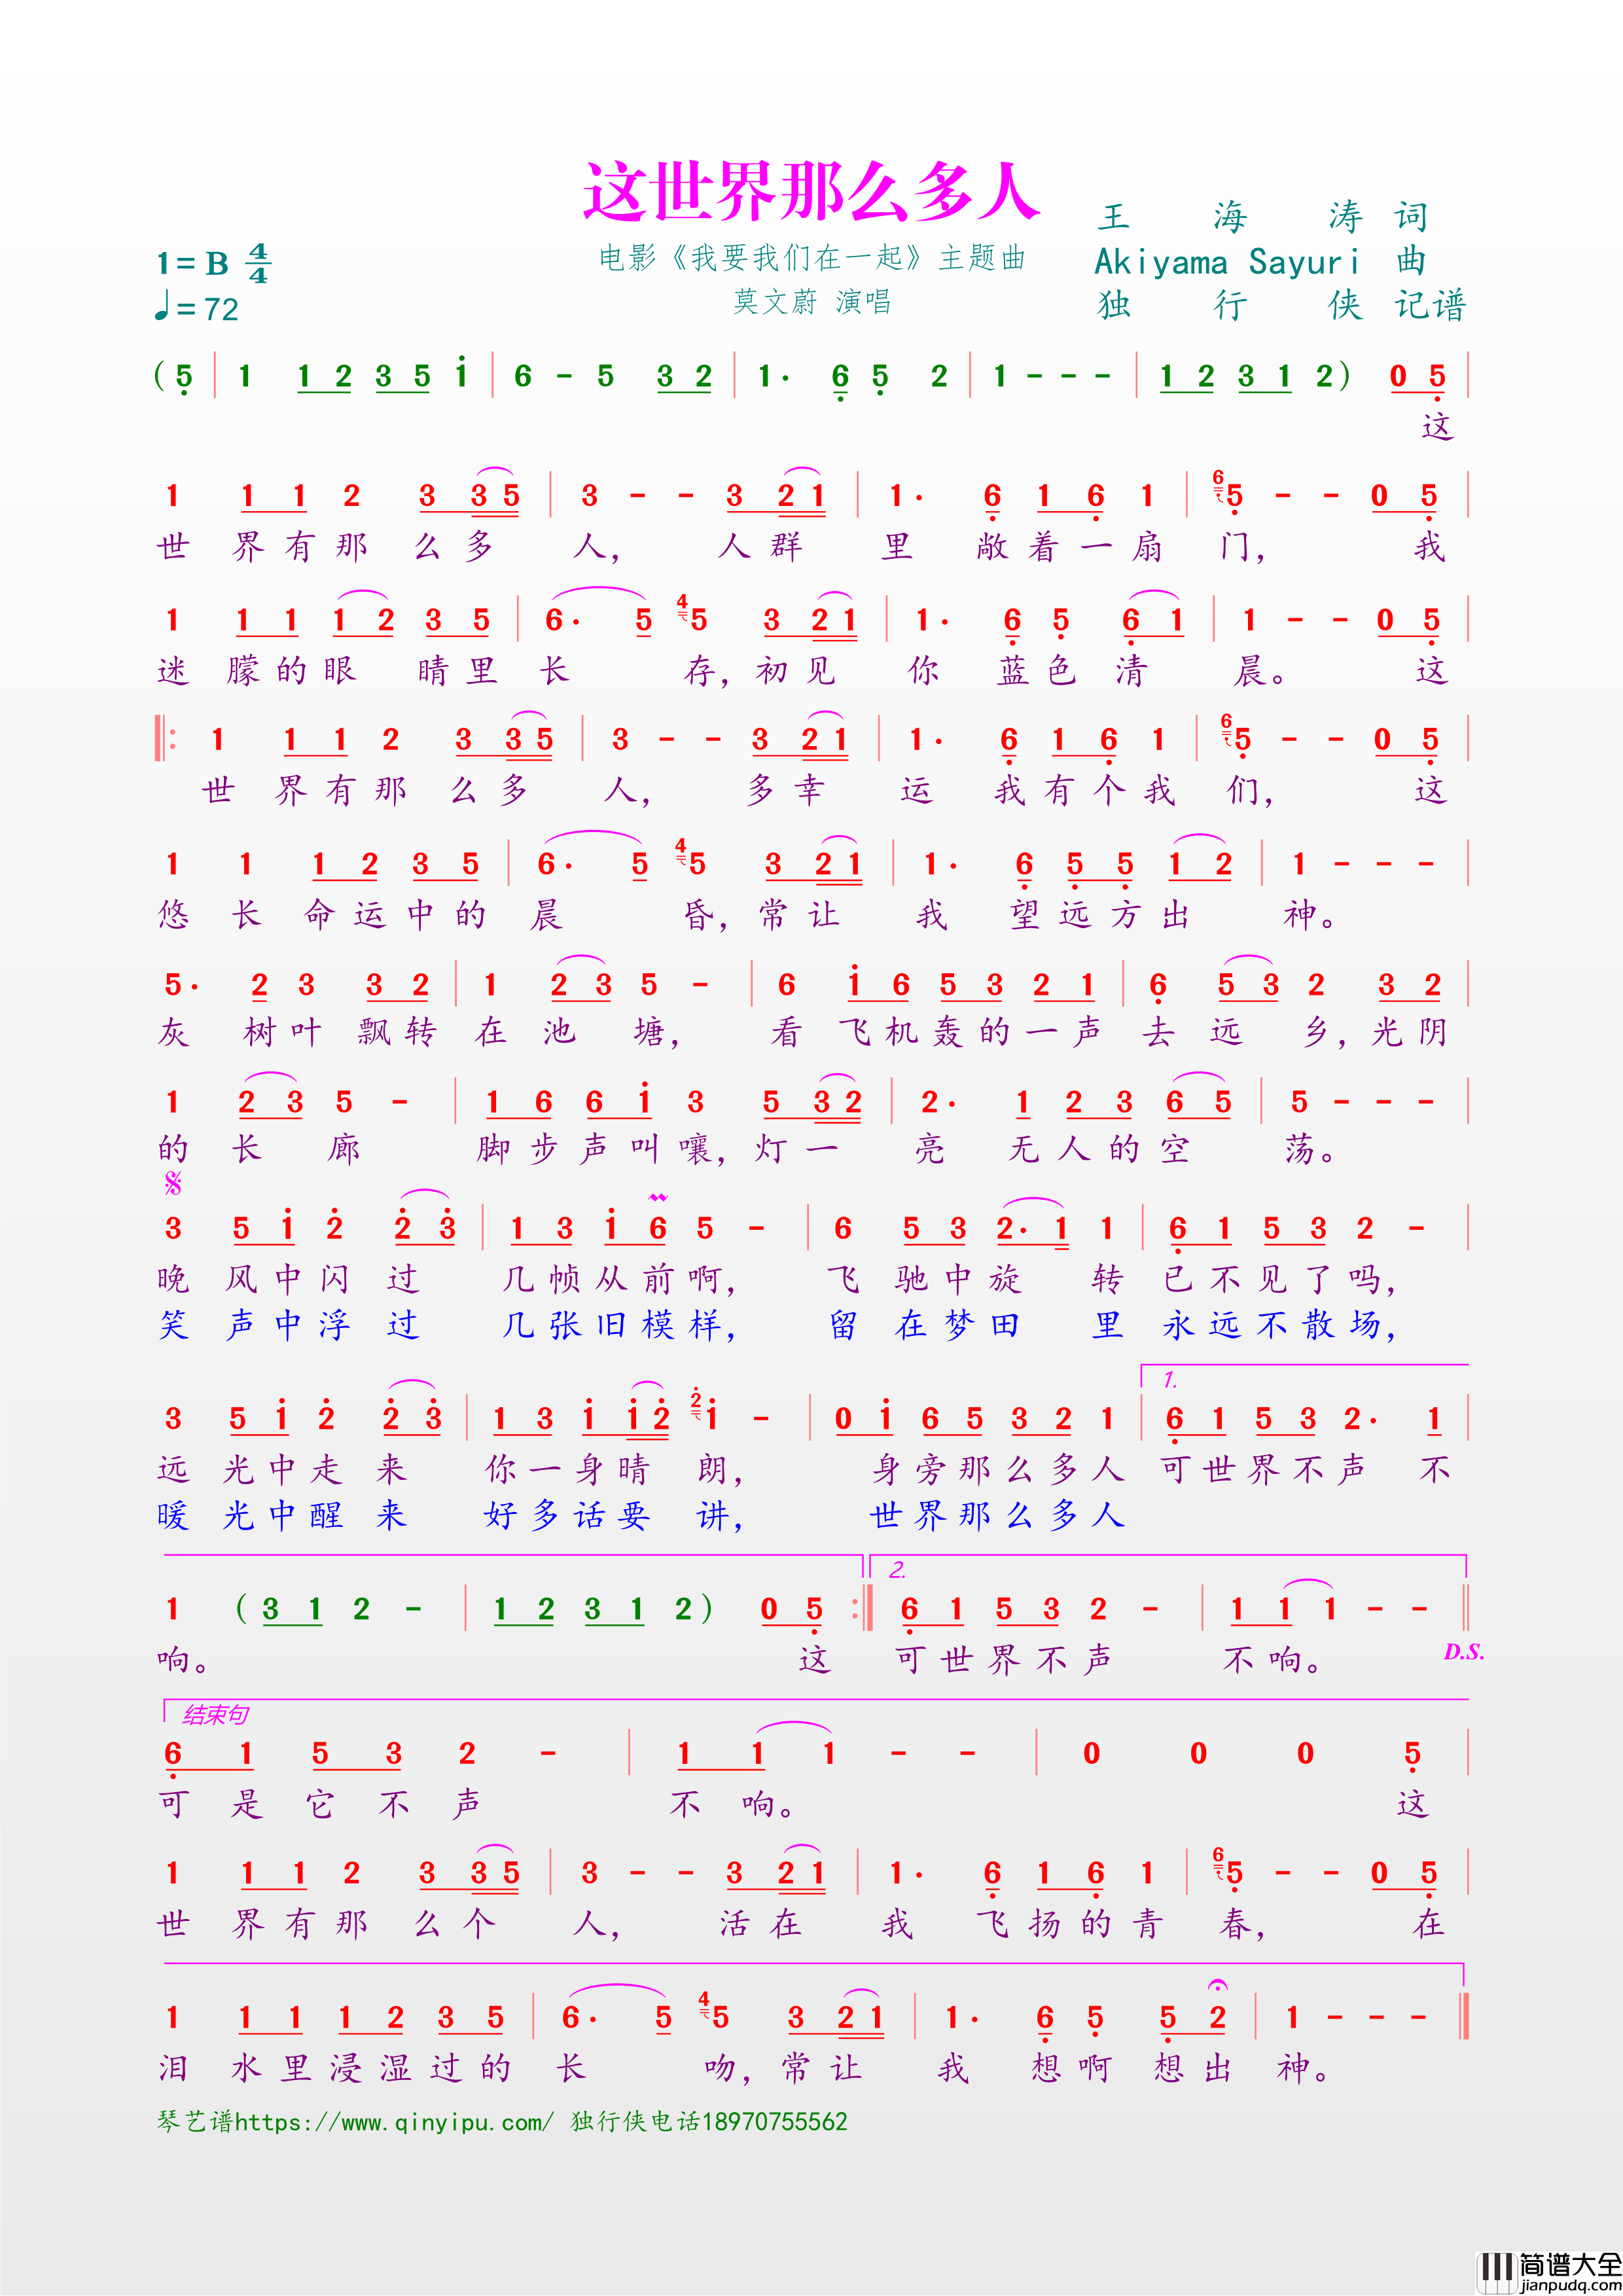 这世界那么多人
王 海 涛 词
1=B 4/4
电影《我要我们在一起》主题曲
Akiyama Sayuri 曲
♩=72
莫文蔚 演唱
独 行 侠 记谱
(5̣ | 1 1 2 3 5 1̇ | 6 - 5 3 2 | 1. 6̣ 5̣ 2 | 1 - - - | 1 2 3 1 2) 0 5̣ |
这
1 1 1 2 3 3 5 | 3 - - 3 2 1 | 1. 6̣ 1 6̣ 1 | 6 5̣ - - 0 5̣ |
世 界 有 那 么 多 人, 人 群 里 敞 着 一 扇 门, 我
1 1 1 1 2 3 5 | 6. 5 4 5 3 2 1 | 1. 6̣ 5̣ 6̣ 1 | 1 - - 0 5̣ |
迷 朦 的 眼 晴 里 长 存, 初 见 你 蓝 色 清 晨。 这
‖: 1 1 1 2 3 3 5 | 3 - - 3 2 1 | 1. 6̣ 1 6̣ 1 | 6 5̣ - - 0 5̣ |
世 界 有 那 么 多 人, 多 幸 运 我 有 个 我 们, 这
1 1 1 2 3 5 | 6. 5 4 5 3 2 1 | 1. 6̣ 5̣ 5̣ 1 2 | 1 - - - |
悠 长 命 运 中 的 晨 昏, 常 让 我 望 远 方 出 神。
5. 2 3 3 2 | 1 2 3 5 - | 6 1̇ 6 5 3 2 1 | 6̣ 5 3 2 3 2 |
灰 树 叶 飘 转 在 池 塘, 看 飞 机 轰 的 一 声 去 远 乡, 光 阴
1 2 3 5 - | 1 6 6 1̇ 3 5 3 2 | 2. 1 2 3 6 5 | 5 - - - |
的 长 廊 脚 步 声 叫 嚷, 灯 一 亮 无 人 的 空 荡。
𝄋
3 5 1̇ 2̇ 2̇ 3̇ | 1 3 1̇ 6 5 - | 6 5 3 2. 1 1 | 6̣ 1 5 3 2 - |
晚 风 中 闪 过 几 帧 从 前 啊, 飞 驰 中 旋 转 已 不 见 了 吗,
笑 声 中 浮 过 几 张 旧 模 样, 留 在 梦 田 里 永 远 不 散 场,
1.
3 5 1̇ 2̇ 2̇ 3̇ | 1 3 1̇ 1̇ 2̇ 2̇ 1̇ - | 0 1̇ 6 5 3 2 1 | 6̣ 1 5 3 2. 1 |
远 光 中 走 来 你 一 身 晴 朗, 身 旁 那 么 多 人 可 世 界 不 声 不
暖 光 中 醒 来 好 多 话 要 讲, 世 界 那 么 多 人
2.
1 (3 1 2 - | 1 2 3 1 2) 0 5̣ :‖ 6̣ 1 5 3 2 - | 1 1 1 - - ‖
响。 这 可 世 界 不 声 不 响。 D.S.
结束句
6̣ 1 5 3 2 - | 1 1 1 - - | 0 0 0 5̣ |
可 是 它 不 声 不 响。 这
1 1 1 2 3 3 5 | 3 - - 3 2 1 | 1. 6̣ 1 6̣ 1 | 6 5̣ - - 0 5̣ |
世 界 有 那 么 个 人, 活 在 我 飞 扬 的 青 春, 在
1 1 1 1 2 3 5 | 6. 5 4 5 3 2 1 | 1. 6̣ 5̣ 5̣ 2 | 1 - - - ‖
泪 水 里 浸 湿 过 的 长 吻, 常 让 我 想 啊 想 出 神。
琴艺谱https://www.qinyipu.com/ 独行侠电话18970755562
简谱大全
jianpudq.com